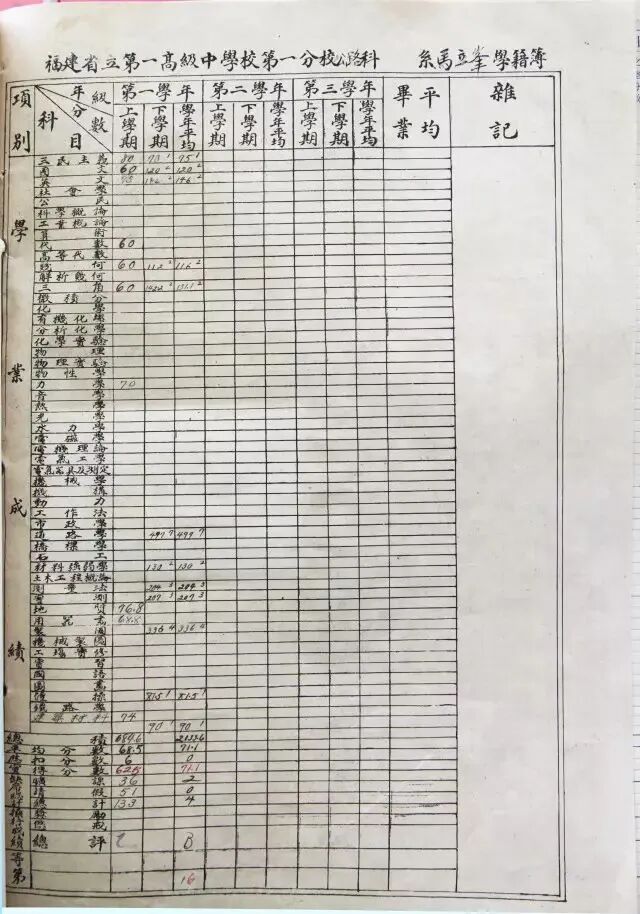 福建省立第一高級中學校第一分校公路科 系馬立峯學籍簿
項別 年級 科目 分數 第一學年 第二學年 第三學年 畢業 平均 雜記
上學期 下學期 學年平均 上學期 下學期 學年平均 上學期 下學期 學年平均
學業成績
三民主義 80 70 1 75 1
國文 60 120 2 120 2
英文 142 2 146 2
社會學
公民
科學概論
工業概論
算術
代數 60
高等代數
幾何 60 112 2 116 2
解析幾何
三角 60 142.2 151.1 2
微積分
化學
有機化學
分析化學
化學實驗
物理
物理實驗
物性學
力學 70
音學
熱學
光學
水力學
電磁學
電機理論
電氣工學
電氣器具及測定
機械學
機構
動力
工作法
市政學
道路學 497 7 499 7
橋樑學
石工
材料強弱學 130 2 130 2
土木工程概論
測量法 204 3 204 3
實測 207 3 207 3
地質 76.8
用器畫 68.8
製圖 336 4 336 4
機械製圖
工場實修
實習
國語
圖畫
體操 81.5 1 81.5 1
鐵路學
建築材料 74
90 1 90 1
總積 687.6 2133.6
平均分數 68.5 71.1
扣分數 6 0
得分數 62.5 71.1
曠課 36 2
請假 51 0
積計 133 4
獎勵
懲戒
操行成績
總評 C B
等第 16